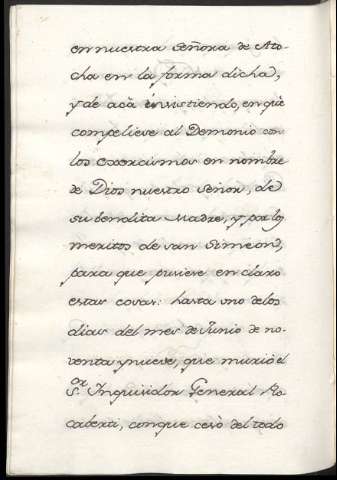 en nuestra señora de Ato-
cha en la forma dicha,
y de acà insistiendo, en què
compeliese al Demonio con
los exorcismos en nombre
de Dios nuestro Señor, de
su bendita Madre, y por los
meritos de san Simeon,
para que pusiese en claro
estas cosas: hasta uno de los
dias del mes de Junio de no-
venta y nueve, que murió el
S.or Inquisidor General Ro-
caberti, conque cesò del todo